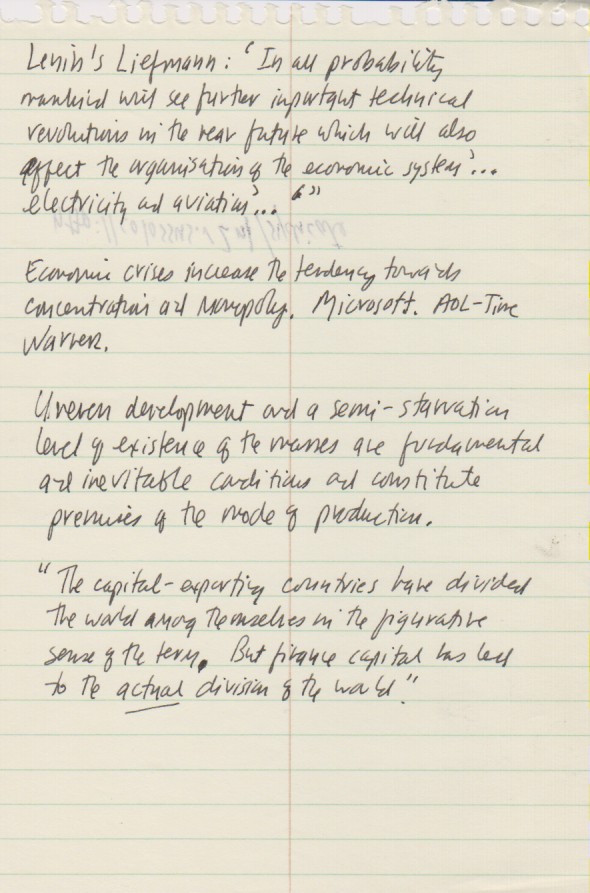 Lenin's Liefmann: "In all probability
mankind will see further important technical
revolutions in the near future which will also
affect the organisation of the economic system'...
electricity and aviation'... "”
Economic crises increase the tendency towards
concentration and Monopoly. Microsoft. AOL-Time
Warner.
Uneven development and a semi-starvation
level of existence of the masses are fundamental
and inevitable conditions and constitute
premises of the mode of production.
"The capital-exporting countries have divided
the world among themselves in the figurative
sense of the term. But finance capital has led
to the actual division of the world"